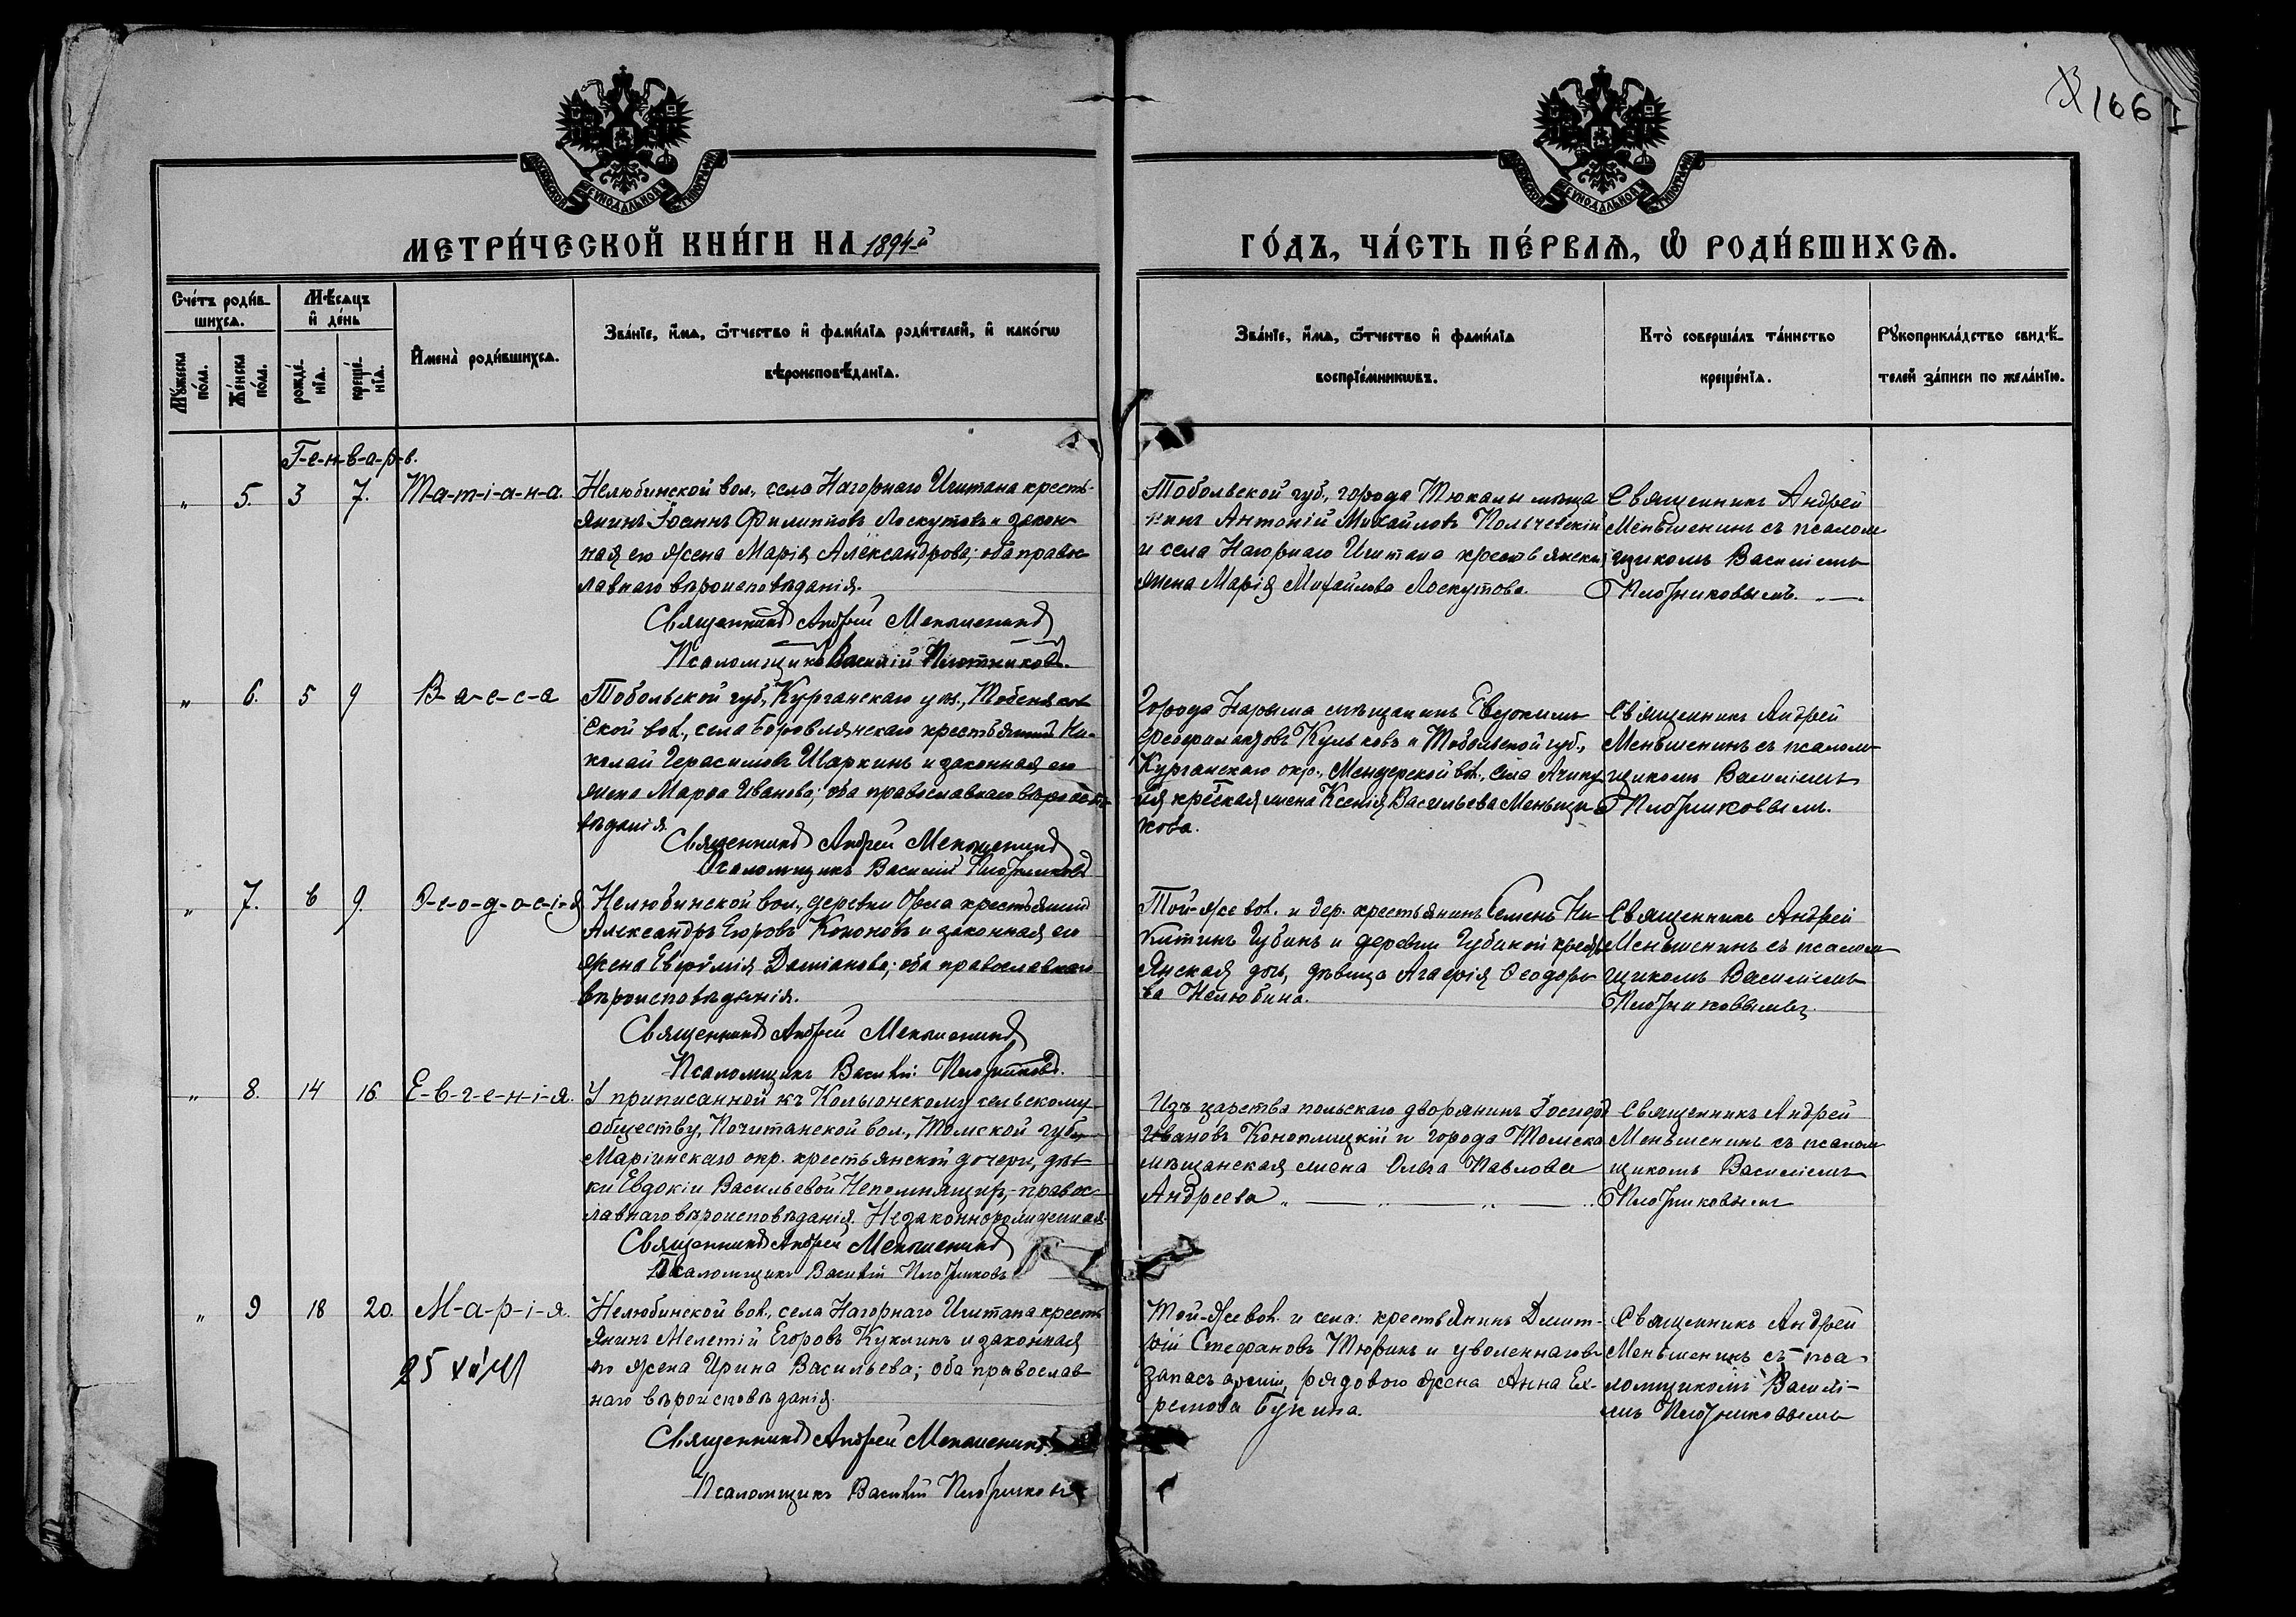 166
МОСКОВСКОЙ СѴНОДАЛЬНОЙ ТИПОГРАФІИ
МОСКОВСКОЙ СѴНОДАЛЬНОЙ ТИПОГРАФІИ
МЕТРИ́ЧЕСКОЙ КНИ́ГИ НА 1894-й
ГО́ДЪ, ЧА́СТЬ ПЕ́РВАѦ, Ѡ҆ РОДИ́ВШИХСѦ.
Сче́тъ роди́в-
шихсѧ.
Мѣ́сѧцъ
и҆ де́нь
Мꙋ́жеска
по́ла.
Же́нска
по́ла.
рожде́-
нїѧ.
креще́-
нїѧ.
И҆мена̀ роди́вшихсѧ.
Зва́нїе, и҆́мѧ, ѻ҆́тчество и҆ фами́лїѧ роди́телей, и҆ како́гѡ
вѣроисповѣ́данїѧ.
Зва́нїе, и҆́мѧ, ѻ҆́тчество и҆ фами́лїѧ
воспрїе́мникѡвъ.
Кто̀ соверша́лъ та́инство
креще́нїѧ.
Рꙋкоприкла́дство свидѣ́-
телей за́писи по жела́нїю.
Г-е-н-в-а-р-ь.
" 5. 3 7. Т-а-т-і-а-н-а.
Нелюбинской вол., села Нагорнаго Иштана кресть-
янинъ Іоаннъ Филипповъ Лоскутовъ и закон-
ная его жена Марія Александрова; оба правос-
лавнаго вѣроисповѣданія.
Священникъ Андрей Меньшенинъ
Псаломщикъ Василій Плотниковъ.
Тобольской губ., города Тюкалы мѣща
нинъ Антоній Михайловъ Кольчевскій
и села Нагорнаго Иштана крестьянская
жена Марія Михайлова Лоскутова.
Священникъ Андрей
Меньшенинъ съ псалом
щикомъ Василіемъ
Плотниковымъ.
" 6. 5 9 В-а-с-с-а
Тобольской губ., Курганскаго уѣз.,
ской вол., села Боровлянскаго крестьянинъ Ни-
колай Герасимовъ Шаркинъ и законная его
жена Марѳа Иванова; оба православнаго вѣроиспо-
вѣданія.
Священникъ Андрей Меньшенинъ
Псаломщикъ Василій Плотниковъ
Города Нарыма мѣщанинъ Евдокимъ
Кульковъ и Тобольской губ.,
Курганскаго окр., Мендерской вол., села
жена Ксенія Васильева Меньщи-
кова.
Священникъ Андрей
Меньшенинъ съ псалом-
щикомъ Василіемъ
Плотниковымъ.
" 7. 6 9. Ѳ-е-о-д-о-с-і-я
Нелюбинской вол., деревни Орла крестьянинъ
Александръ Егоровъ Кононовъ и законная его
жена Евфимія Даміанова; оба православнаго
вѣроисповѣданія.
Священникъ Андрей Меньшенинъ
Псаломщикъ Василій Плотниковъ.
Той-же вол. и дер. крестьянинъ Семенъ Ни-
китинъ Губинъ и деревни Губиной кресть
янская дочь, дѣвица Агафія Ѳеодоро-
ва Нелюбина.
Священникъ Андрей
Меньшенинъ съ псалом
щикомъ Василіемъ
Плотниковымъ.
" 8. 14 16. Е-в-г-е-н-і-я.
У приписанной къ Кольонскому сельскому
обществу, Почитанской вол., Томской губ.,
Маріинскаго окр. крестьянской дочери, дѣв-
ки Евдокіи Васильевой Непомнящихъ, - правос-
лавнаго вѣроисповѣданія. Незаконнорожденная
Священникъ Андрей Меньшенинъ
Псаломщикъ Василій Плотниковъ
Изъ царства польскаго дворянинъ Іосифъ
Ивановъ Коноплицкій и города Томска
мѣщанская жена Ольга Павлова
Андреева "
Священникъ Андрей
Меньшенинъ съ псалом
щикомъ Василіемъ
Плотниковымъ
" 9 18 20. М-а-р-і-я.
25
Нелюбинской вол., села Нагорнаго Иштана кресть
янинъ Мелетій Егоровъ Куклинъ и законная
его жена Ирина Васильева; оба православ-
наго вѣроисповѣданія.
Священникъ Андрей Меньшенинъ
Псаломщикъ Василій Плотниковъ
Той-же вол. и села: крестьянинъ Димит-
рій Стефановъ Тюринъ и уволеннаго въ
запасъ арміи, рядового жена Анна Еф-
ремова Букина.
Священникъ Андрей
Меньшенинъ съ пса-
ломщикомъ Василі-
емъ Плотниковымъ